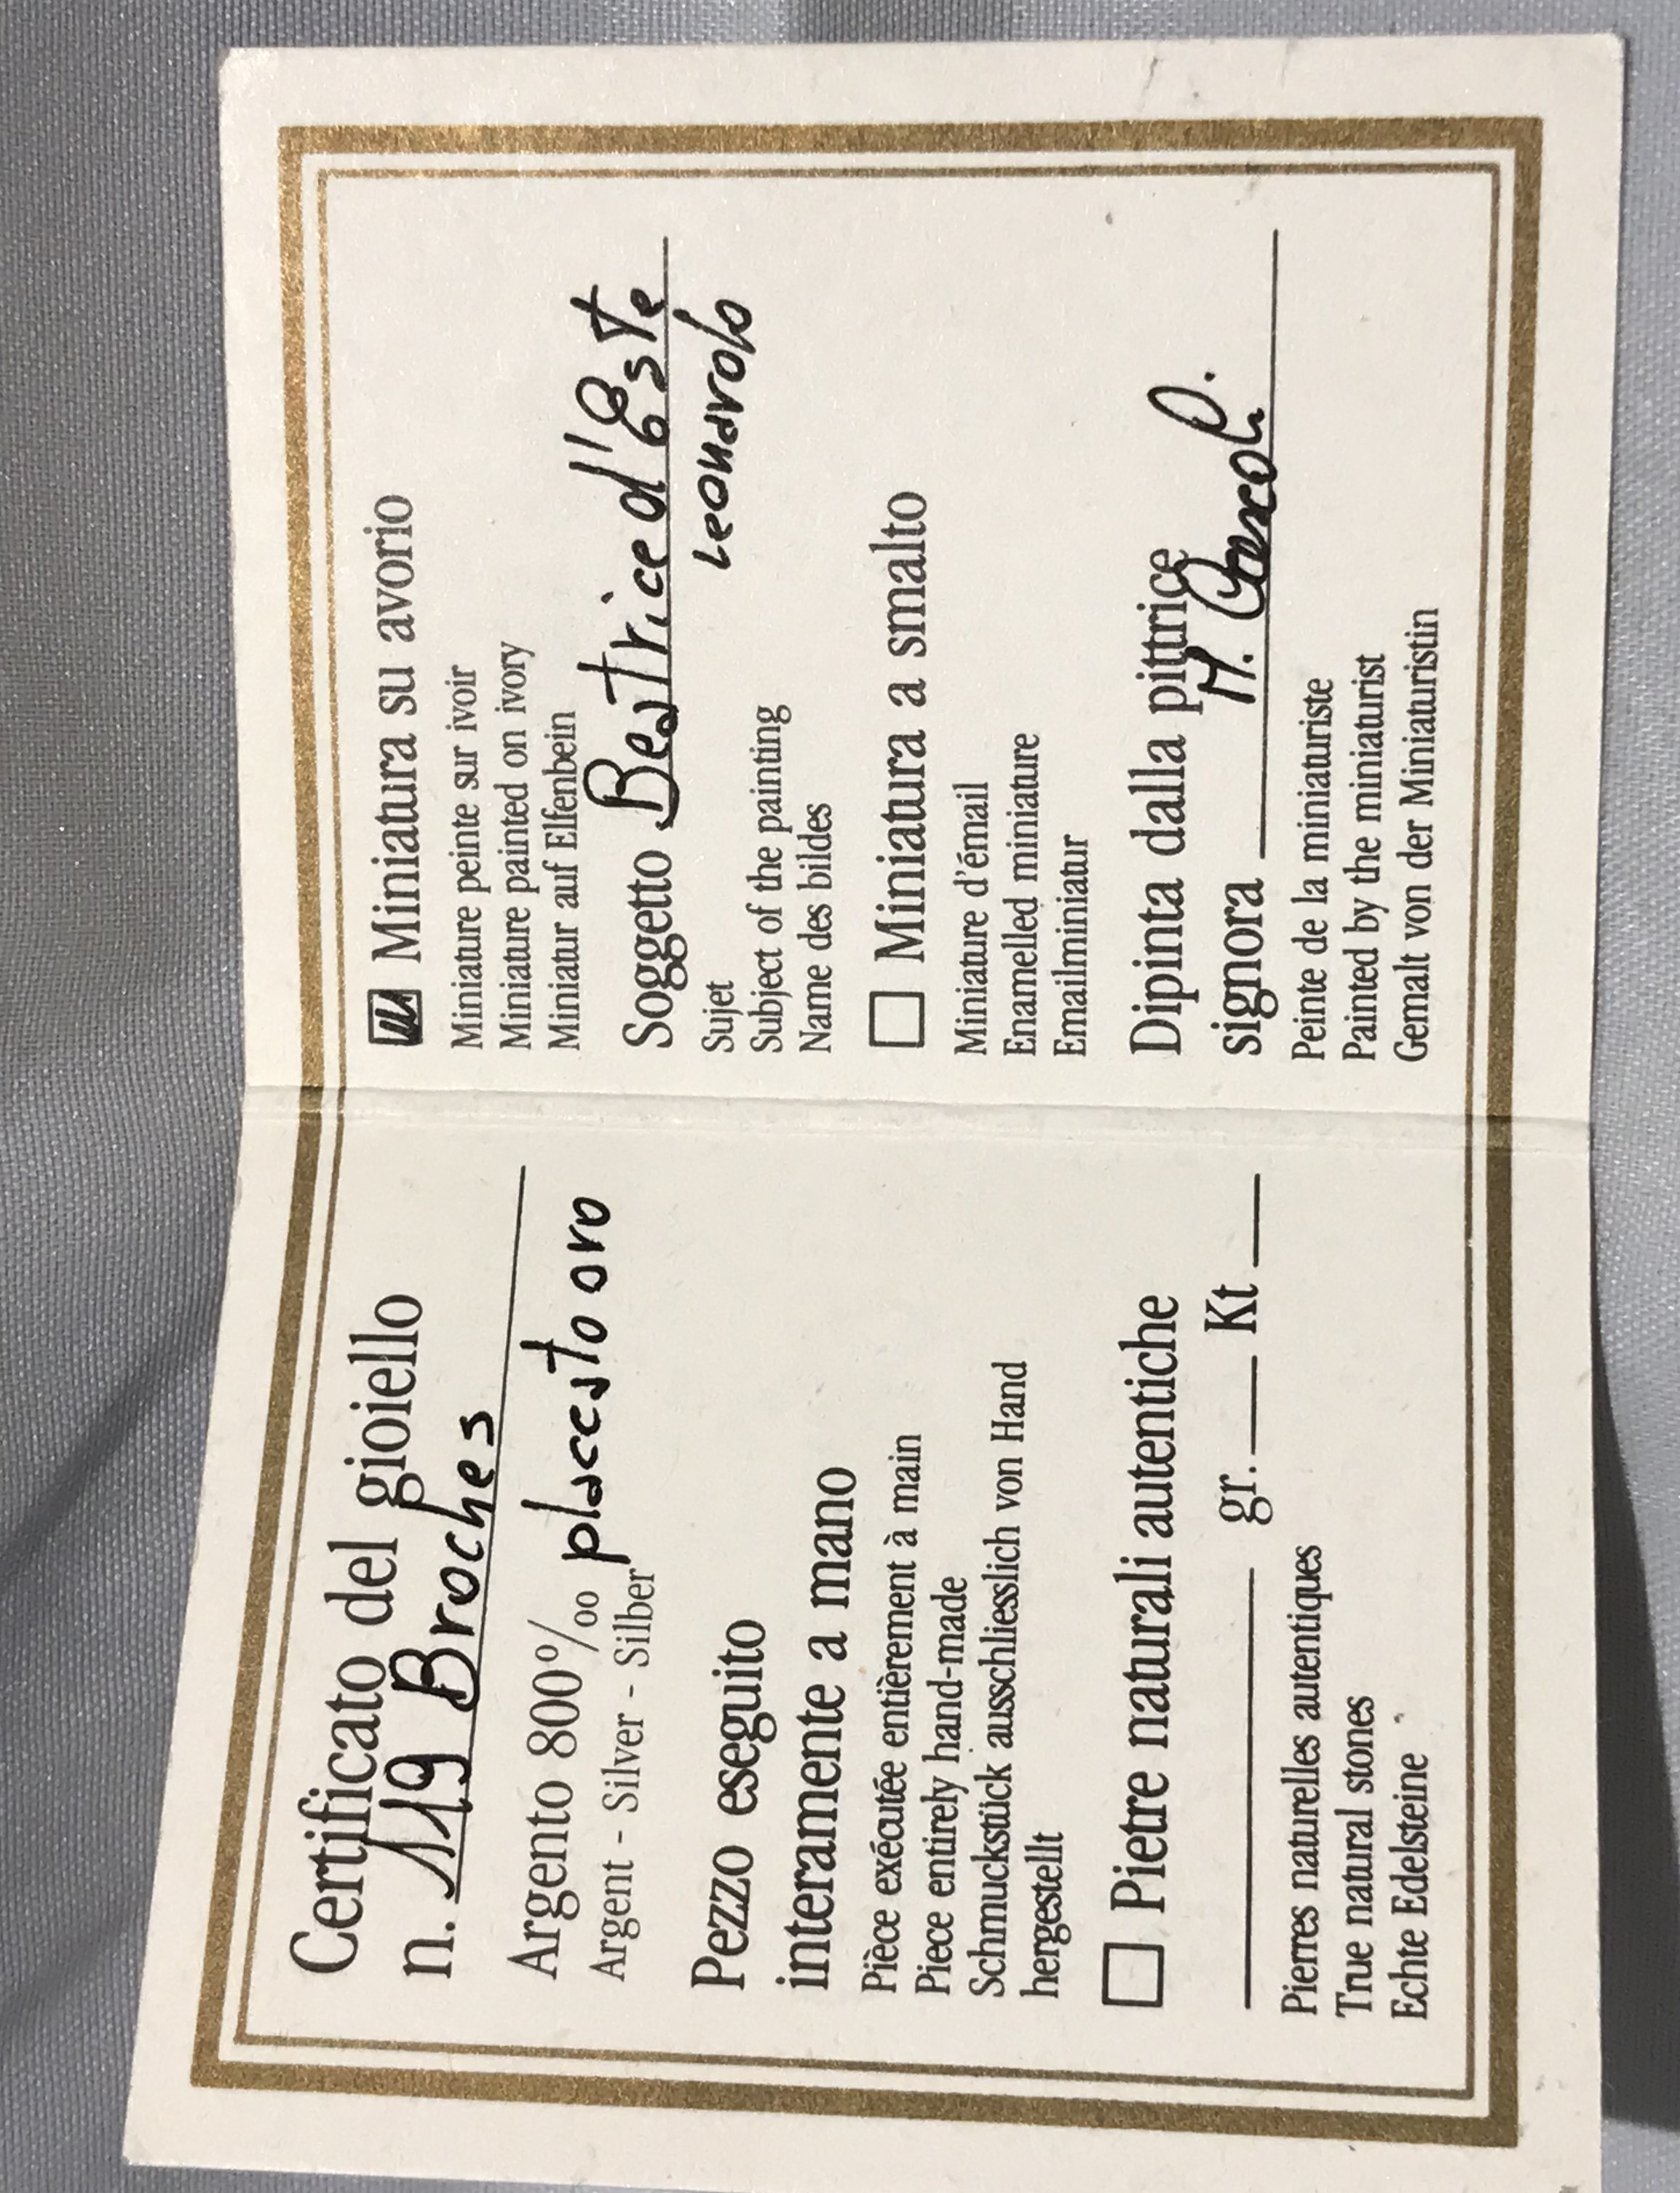 Certificato del gioiello
n. 119 Broches
Argento 800‰ placcato oro
Argent - Silver - Silber
Pezzo eseguito
interamente a mano
Pièce exécutée entièrement à main
Piece entirely hand-made
Schmuckstück ausschliesslich von Hand
hergestellt
Pietre naturali autentiche
gr. Kt
Pierres naturelles autentiques
True natural stones
Echte Edelsteine
Miniatura su avorio
Miniature peinte sur ivoir
Miniature painted on ivory
Miniatur auf Elfenbein
Soggetto Beatrice d'Este
Leonardo
Sujet
Subject of the painting
Name des bildes
Miniatura a smalto
Miniature d'émail
Enamelled miniature
Emailminiatur
Dipinta dalla pittrice
signora M.
Peinte de la miniaturiste
Painted by the miniaturist
Gemalt von der Miniaturistin